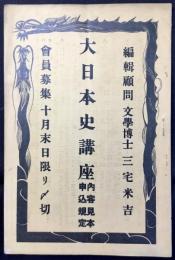 編輯顧問 文學博士 三宅米吉
大日本史講座 內容見本 申込規定
會員募集 十月末日限リ〆切